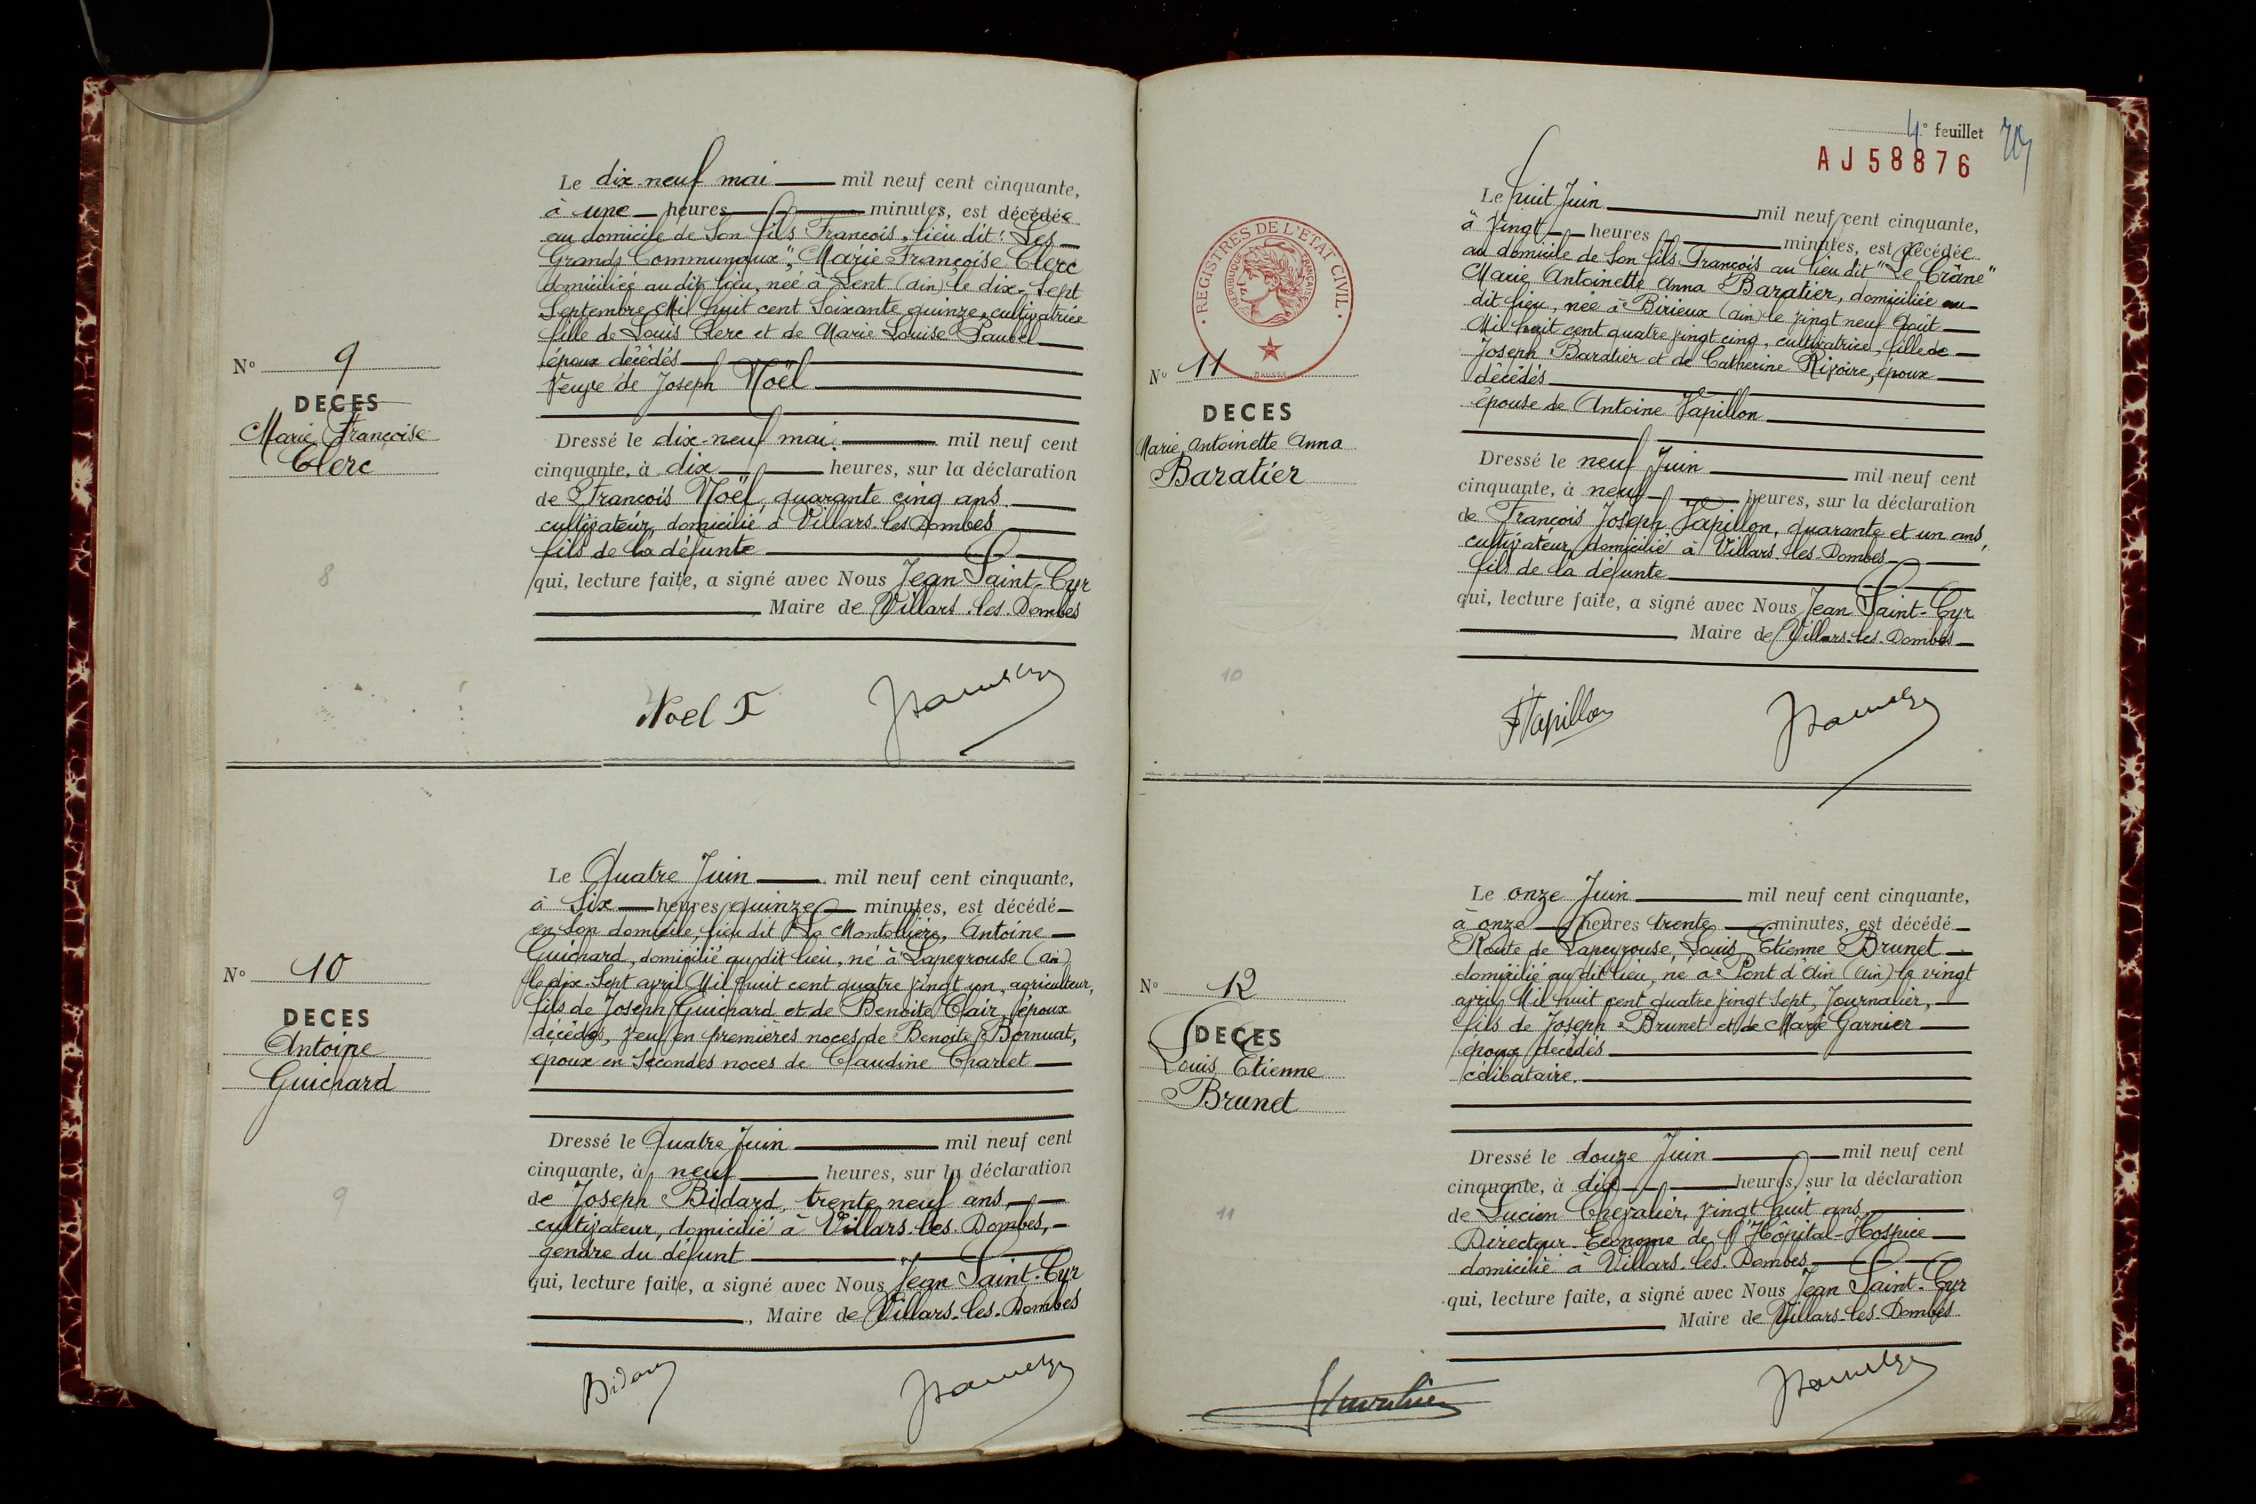 Le dix-neuf mai mil neuf cent cinquante,
à une heures minutes, est décédée
au domicile de Son fils François, lieu dit "Les
Grands Communaux", Marie Françoise Clerc
domiciliée au dit lieu, née à Lent (ain) le dix-Sept
Septembre Mil huit cent Soixante quinze, cultivatrice
fille de Louis Clerc et de Marie Louise Paubel
époux décédés
Veuve de Joseph Noël
No 9
DECES
Marie Françoise
Clerc
Dressé le dix-neuf mai mil neuf cent
cinquante, à dix heures, sur la déclaration
de François Noël, quarante cinq ans
cultivateur, domicilié à Villars-les-Dombes
fils de la défunte
qui, lecture faite, a signé avec Nous Jean Saint-Cyr
Maire de Villars-les-Dombes
8
Noel F
Le Quatre Juin mil neuf cent cinquante,
à Six heures quinze minutes, est décédé
en Son domicile, lieu dit La Montollière, Antoine
Guichard, domicilié au dit lieu, né à Lapeyrouse (ain)
le dix-Sept avril Mil huit cent quatre vingt un, agriculteur,
fils de Joseph Guichard et de Benoite Clair, époux
décédés, veuf en premieres noces de Benoite Bornuat,
époux en Secondes noces de Claudine Charlet
No 10
DECES
Antoine
Guichard
Dressé le Quatre Juin mil neuf cent
cinquante, à neuf heures, sur la déclaration
de Joseph Bidard, trente neuf ans,
cultivateur, domicilié à Villars-les-Dombes,
gendre du défunt
qui, lecture faite, a signé avec Nous Jean Saint-Cyr
, Maire de Villars-les-Dombes
9
Bidard
4e feuillet
AJ58876
REGISTRES DE L'ETAT CIVIL
REPUBLIQUE FRANÇAISE
Le huit Juin mil neuf cent cinquante,
à vingt heures minutes, est décédée
au domicile de Son fils François au lieu dit "Le Crâne"
Marie Antoinette Anna Baratier, domiciliée au
dit lieu, née à Birieux (ain) le vingt neuf Août
Mil huit cent quatre vingt cinq, cultivatrice, fille de
Joseph Baratier et de Catherine Rivoire, époux
décédés
épouse de Antoine Vapillon
No 11
DECES
Marie Antoinette Anna
Baratier
Dressé le neuf Juin mil neuf cent
cinquante, à neuf heures, sur la déclaration
de François Joseph Vapillon, quarante et un ans,
cultivateur, domicilié à Villars-les-Dombes
fils de la défunte
qui, lecture faite, a signé avec Nous Jean Saint-Cyr
Maire de Villars-les-Dombes
10
FVapillon
Le onze Juin mil neuf cent cinquante,
à onze heures trente minutes, est décédé
Route de Lapeyrouse, Louis Etienne Brunet
domicilié au dit lieu, né à Pont d'Ain (ain) le vingt
avril Mil huit cent quatre vingt Sept, Journalier,
fils de Joseph Brunet et de Marie Garnier
époux décédés
célibataire.
No 12
DECES
Louis Etienne
Brunet
Dressé le douze Juin mil neuf cent
cinquante, à dix heures, sur la déclaration
de Lucien Chevalier, vingt huit ans
Directeur-Econome de l'Hôpital-Hospice
domicilié à Villars-les-Dombes
qui, lecture faite, a signé avec Nous Jean Saint-Cyr
Maire de Villars-les-Dombes
11